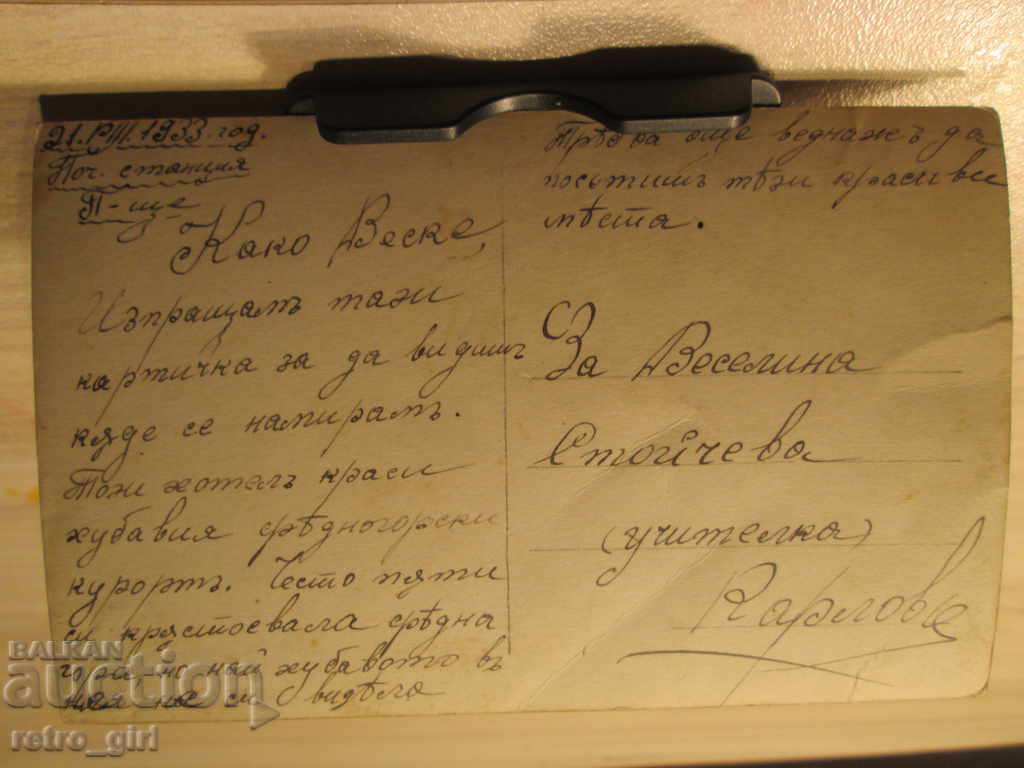 21.VIII.1933 год.
Поч. станция
П-ще
Како Веске,
Изпращамъ тази
картичка за да видишъ
кѫде се намирамъ.
Този хотелъ краси
хубавия срѣдногорски
курортъ. Често пѫти
си крѫстосвала срѣдна
гора, но най хубавото въ
нея не си видѣла
Трѣбва още веднажъ да
посѣтишъ тѣзи красиви
мѣста.
За Веселина
Стойчева
(учителка)
Карлово
BALKAN
auction
retro_girl